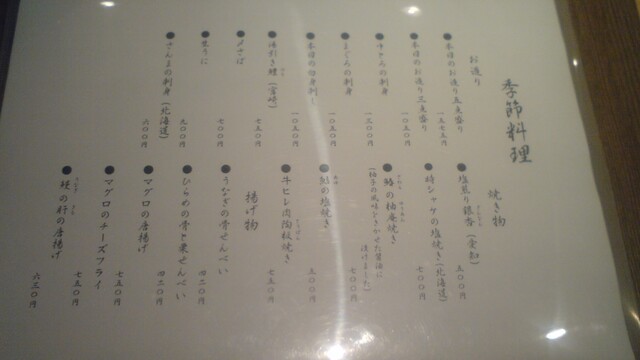 季節料理
お造り
●本日のお造り五点盛り 一五七五円
●本日のお造り三点盛り 一〇五〇円
●中とろの刺身 一二〇〇円
●まぐろの刺身 一〇五〇円
●本日の白身刺し 一〇五〇円
●湯引き鱧(宮崎) 七五〇円
●〆さば 七〇〇円
●生うに 九〇〇円
●さんまの刺身(北海道) 六〇〇円
焼き物
●塩煎り銀杏(愛知) 五〇〇円
●時シャケの塩焼き(北海道) 七〇〇円
●の柚庵焼き
(柚子の風味をきかせた醤油に
漬けました) 七〇〇円
●鮎の塩焼き 五〇〇円
●牛ヒレ肉陶板焼き 七五〇円
揚げ物
●うなぎの骨せんべい 四二〇円
●ひらめの骨と皮せんべい 四二〇円
●マグロの唐揚げ 七五〇円
●マグロのチーズフライ 七五〇円
●の唐揚げ 六三〇円